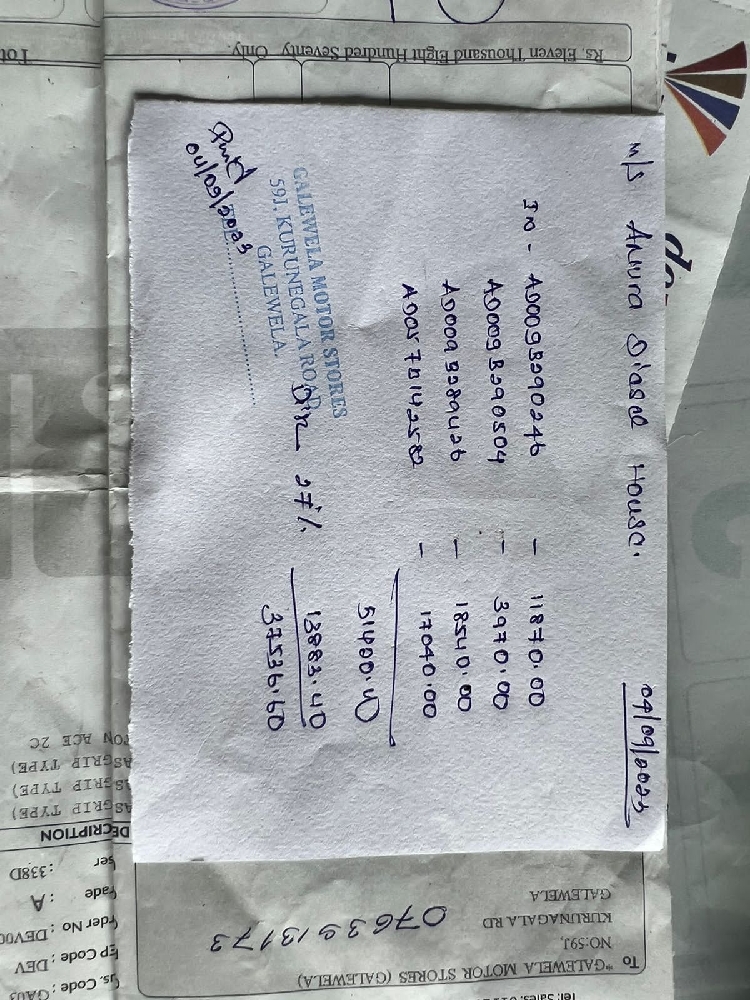 Rs. Eleven Thousand Eight Hundred Seventy Only.
M/S Anura Diasel House.
04/09/2023
IN - AD009B290246 - 11870.00
AD009B290504 - 3970.00
AD009B289426 - 18540.00
AD057B142582 - 17040.00
51400.40
27% 13883.40
37536.60
GALEWELA MOTOR STORES
59J, KURUNEGALA ROAD,
GALEWELA.
04/09/2023
To "GALEWELA MOTOR STORES (GALEWELA)
NO:59J,
KURUNAGALA RD
GALEWELA
0763913173
Cus. Code : GA03
Rep Code : DEV
Order No : DEV00
Grade : A
User : 338D
DECRIPTION
ASGRIP TYPE)
ASGRIP TYPE)
ASGRIP TYPE)
TON ACE 2C